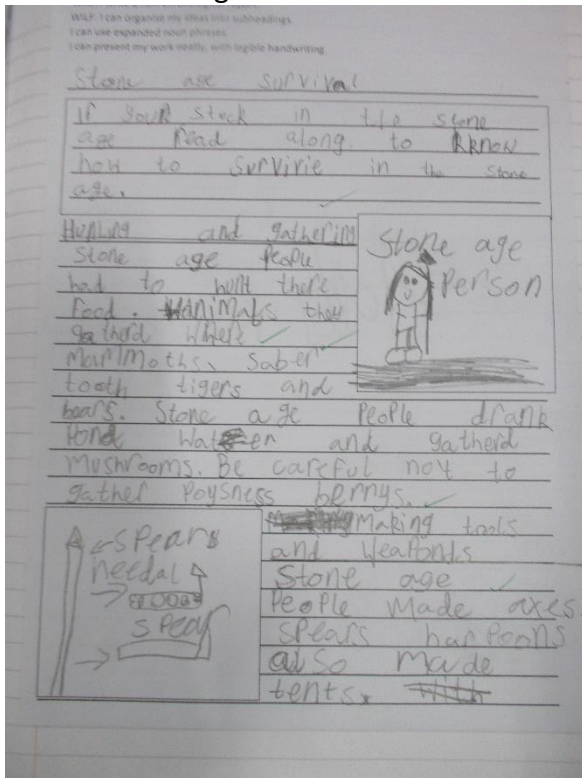 WILF: I can organise my ideas into subheadings.
I can use expanded noun phrases.
I can present my work neatly, with legible handwriting.
Stone age survival
If your stuck in the stone
age read along. to know
how to survirie in the stone
age.
Hunting and gathering
Stone age people
had to hunt there
food. animals they
gatherd where
mammoths, saber
tooth tigers and
bears. Stone age people drank
Pond water and gatherd
mushrooms. Be careful not to
gather poysness berrys.
Stone age
person
Making tools
and weaponds
Stone age
People made axes
spears harpoons
also made
tents.
spears
needal
spear